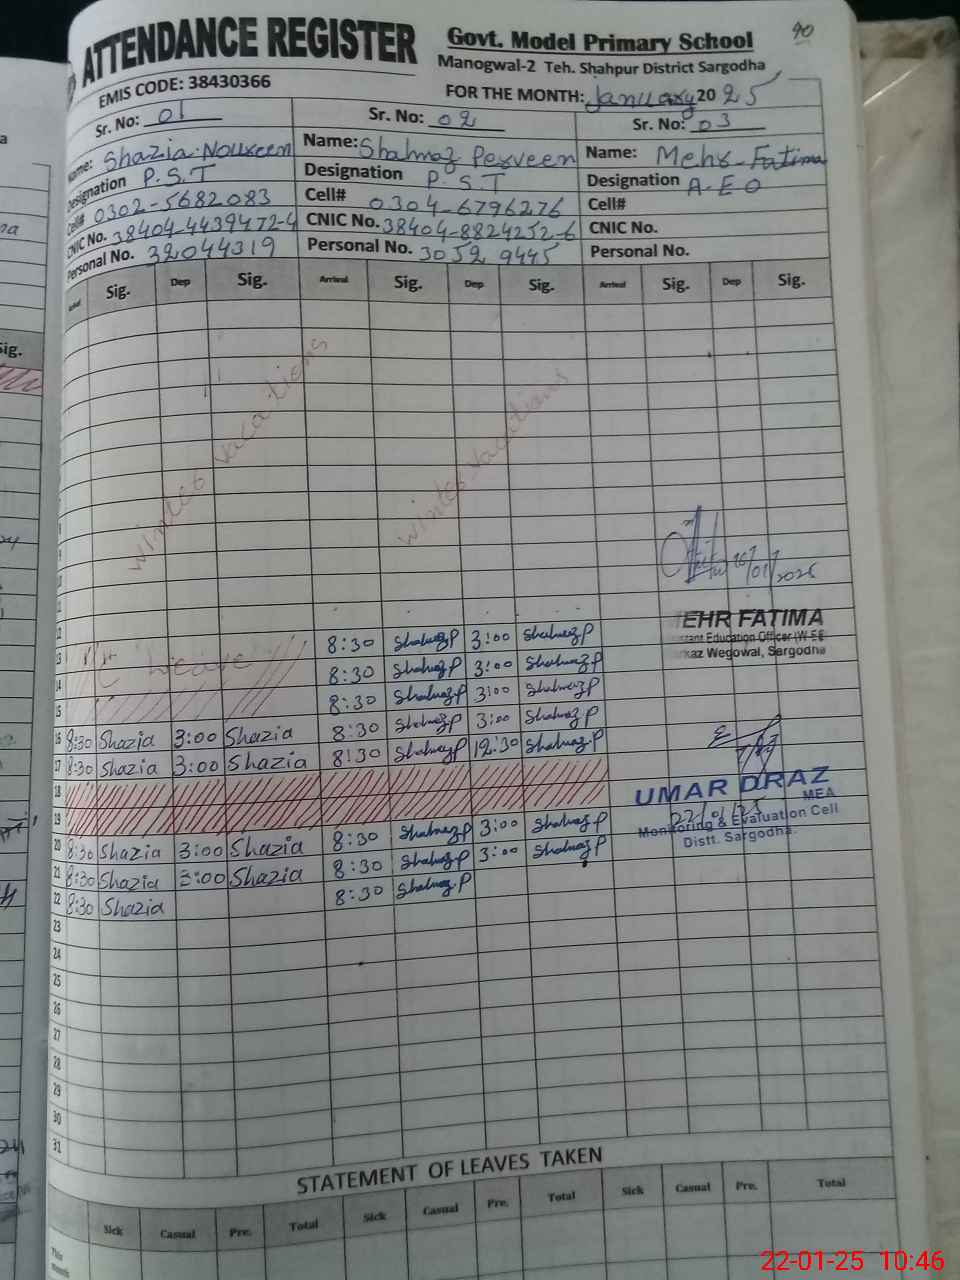 90
ATTENDANCE REGISTER
Govt. Model Primary School
Manogwal-2 Teh. Shahpur District Sargodha
EMIS CODE: 38430366
FOR THE MONTH: January 2025
Sr. No: 01 Sr. No: 02 Sr. No: 03
Name: Shazia Noureen Name: Shahnaz Perveen Name: Mehr Fatima
Designation P.S.T Designation P.S.T Designation A-E O
Cell# 0302-5682083 Cell# 0304-6796276 Cell#
CNIC No. 38404-4439472-4 CNIC No. 38404-8824252-6 CNIC No.
Personal No. 32044319 Personal No. 30529445 Personal No.
Sig. Dep Sig. Arrival Sig. Dep Sig. Arrival Sig. Dep Sig.
Winter Vacations Winter Vacations
20/01/2025
MEHR FATIMA
Assistant Education Officer (W-EE
Markaz Wegowal, Sargodha
12
13 Leave 8:30 Shahnaz P 3:00 Shahnaz P
14 8:30 Shahnaz P 3:00 Shahnaz P
15 8:30 Shahnaz P 3:00 Shahnaz P
16 8:30 Shazia 3:00 Shazia 8:30 Shahnaz P 3:00 Shahnaz P
17 8:30 Shazia 3:00 Shazia 8:30 Shahnaz P 12:30 Shahnaz P
18
19
UMAR DRAZ
MEA
22/01/25
Monitoring & Evaluation Cell
Distt. Sargodha.
20 8:30 Shazia 3:00 Shazia 8:30 Shahnaz P 3:00 Shahnaz P
21 8:30 Shazia 3:00 Shazia 8:30 Shahnaz P 3:00 Shahnaz P
22 8:30 Shazia 8:30 Shahnaz P
23
24
25
26
27
28
29
30
31
STATEMENT OF LEAVES TAKEN
Sick Casual Pre. Total Sick Casual Pre. Total Sick Casual Pre. Total
This
month
22-01-25 10:46